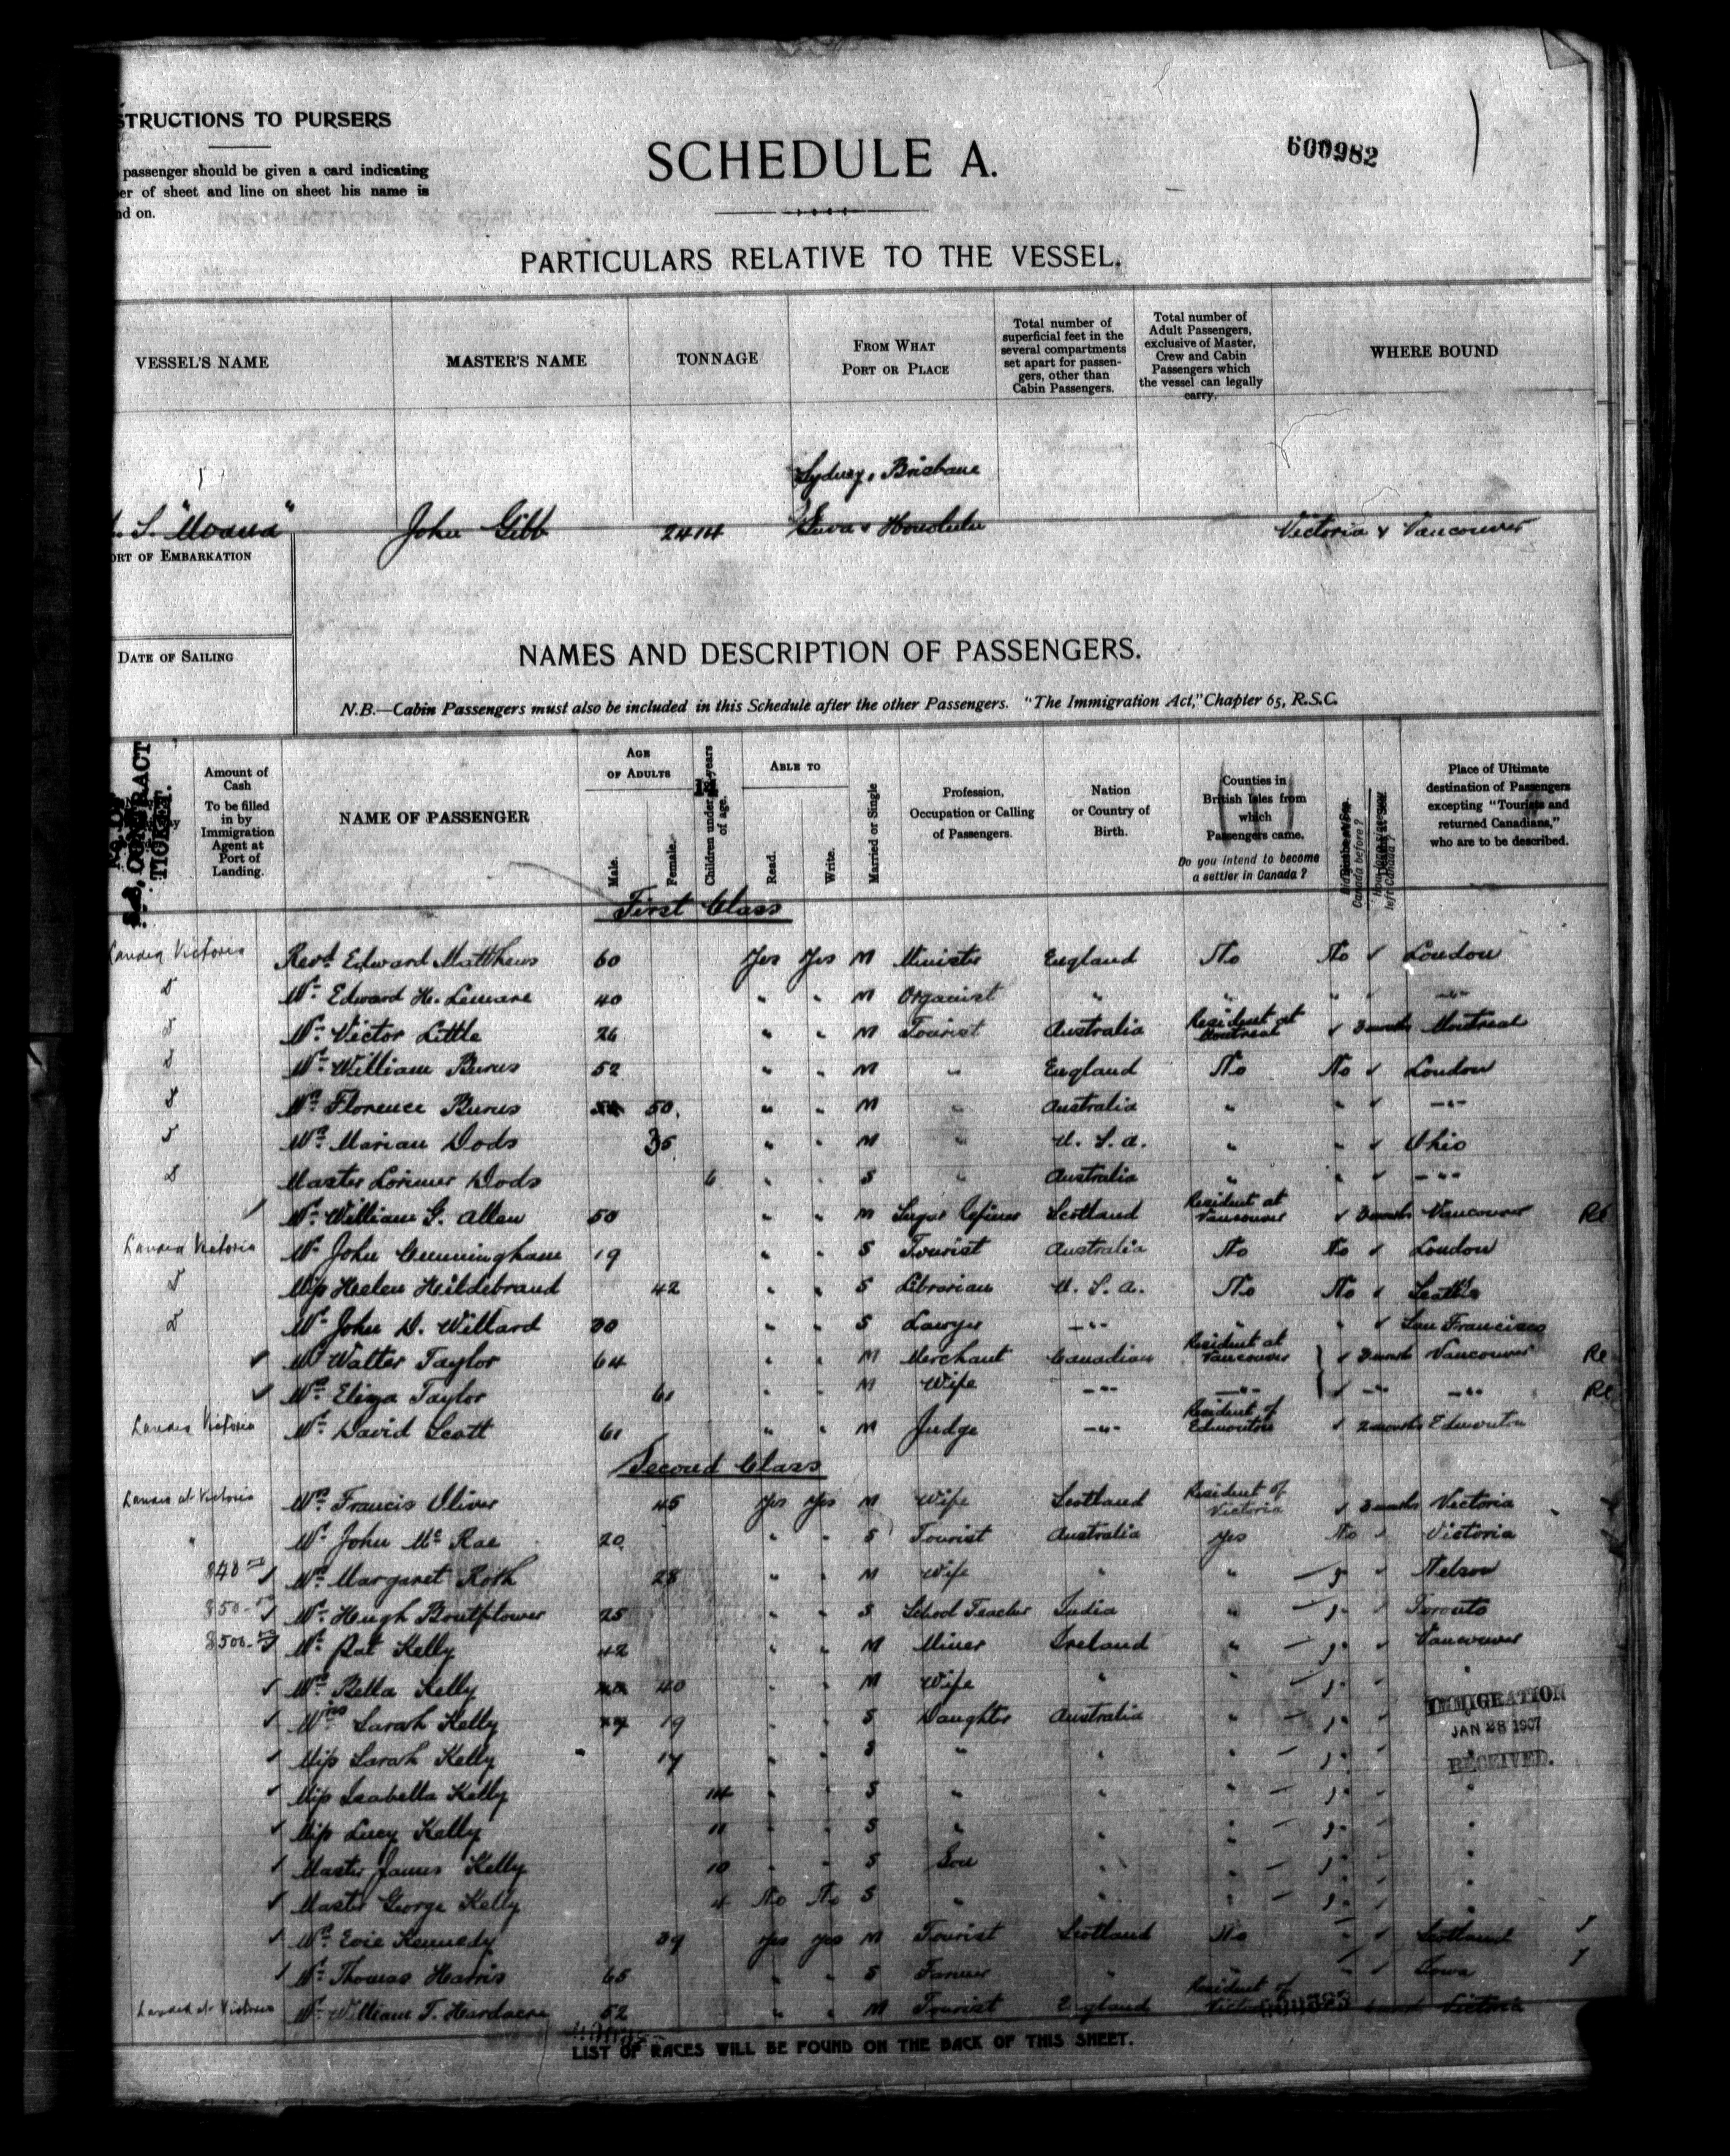 STRUCTIONS TO PURSERS
passenger should be given a card indicating
er of sheet and line on sheet his name is
nd on.
SCHEDULE A.
600982
PARTICULARS RELATIVE TO THE VESSEL.
VESSEL'S NAME
MASTER'S NAME
TONNAGE
FROM WHAT PORT OR PLACE
Total number of superficial feet in the several compartments set apart for passengers, other than Cabin Passengers.
Total number of Adult Passengers, exclusive of Master, Crew and Cabin Passengers which the vessel can legally carry.
WHERE BOUND
Sydney, Brisbane
S. "Moana" John Gibb 2414 Suva & Honolulu Victoria & Vancouver
ORT OF EMBARKATION
DATE OF SAILING
NAMES AND DESCRIPTION OF PASSENGERS.
N.B.—Cabin Passengers must also be included in this Schedule after the other Passengers. "The Immigration Act," Chapter 65, R.S.C.
S.S. CONTRACT TICKET.
Amount of Cash To be filled in by Immigration Agent at Port of Landing.
NAME OF PASSENGER
AGE OF ADULTS
Male.
Female.
Children under years of age.
ABLE TO
Read.
Write.
Married or Single
Profession, Occupation or Calling of Passengers.
Nation or Country of Birth.
Counties in British Isles from which Passengers came.
Do you intend to become a settler in Canada?
Canada before?
left Canada?
Place of Ultimate destination of Passengers excepting "Tourists and returned Canadians," who are to be described.
First Class
Landed Victoria Revd Edward Matthews 60 Yes Yes M Minister England No No ✓ London
Mr. Edward H. Lemare 40 " " M Organist " " " ✓ -"-
Mr. Victor Little 26 " " M Tourist Australia Resident at Montreal ✓ 3 months Montreal
Mr. William Burns 52 " " M " England No No ✓ London
Mrs. Florence Burns 50 " " M " Australia " " ✓ -"-
Mrs. Marian Dods 35 " " M " U. S. A. " " ✓ Ohio
Master Lorimer Dods 6 " " S " Australia " " ✓ -"-
Mr. William G. Allen 50 " " M Sugar Refiner Scotland Resident at Vancouver ✓ 3 months Vancouver Re
Landed Victoria Mr. John Cunningham 19 " " S Tourist Australia No No ✓ London
Miss Helen Hildebrand 42 " " S Librarian U. S. A. No No ✓ Seattle
Mr. John D. Willard 30 " " S Lawyer -"- " " ✓ San Francisco
✓ Mr. Walter Taylor 64 " " M Merchant Canadian Resident at Vancouver ✓ 3 months Vancouver Re
✓ Mrs. Eliza Taylor 61 " " M Wife -"- -"- ✓ -"- -"- Re
Landed Victoria Mr. David Scott 61 " " M Judge -"- Resident of Edmonton ✓ 2 months Edmonton
Second Class
Landed at Victoria Mrs. Francis Oliver 45 Yes Yes M Wife Scotland Resident of Victoria ✓ 3 months Victoria
" Mr. John Mc Rae 20 " " S Tourist Australia Yes No ✓ Victoria
$40 ✓ Mrs. Margaret Roth 28 " " M Wife " " ✓ Nelson
$50 ✓ Mr. Hugh Boutflower 25 " " S School Teacher India " ✓ Toronto
$500 ✓ Mr. Pat Kelly 42 " " M Miner Ireland " ✓ Vancouver
✓ Mrs. Bella Kelly 40 " " M Wife " " ✓ "
✓ Miss Sarah Kelly 19 " " S Daughter Australia " ✓
✓ Miss Sarah Kelly 17 " " S " " " ✓ "
✓ Miss Isabella Kelly 14 " " S " " " ✓ "
✓ Miss Lucy Kelly 11 " " S " " " ✓ "
✓ Master James Kelly 10 " " S Son " " ✓ "
✓ Master George Kelly 4 No No S " " " ✓ "
✓ Mrs. Evie Kennedy 39 Yes Yes M Tourist Scotland No " ✓ Scotland
✓ Mr. Thomas Harris 65 " " S Farmer " " " ✓ Iowa
Landed at Victoria Mr. William T. Hardacre 52 " " M Tourist England Resident of Victoria Victoria
IMMIGRATION
JAN 28 1907
RECEIVED.
LIST OF RACES WILL BE FOUND ON THE BACK OF THIS SHEET.